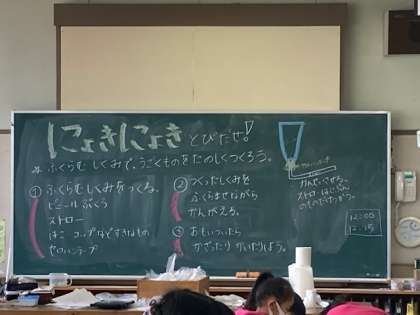 にょきにょき とびだせ!
ふくらむしくみで、うごくものをたのしくつくろう。
① ふくらむしくみをつくる。
ビニールぶくろ
ストロー
はこ コップなどすきなもの
セロハンテープ
② つくったしくみを
ふくらませながら
かんがえる。
③ おもいついたら
かざったり かいたりしよう。
ストロー
12:00
12:15